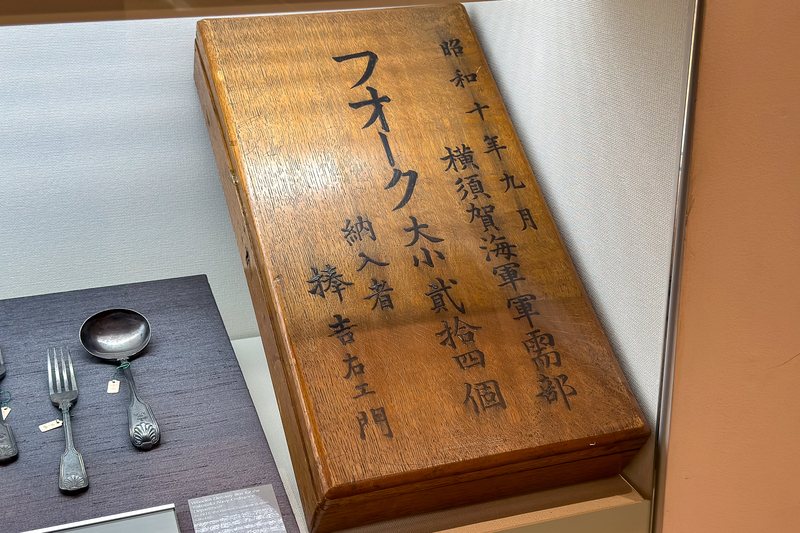 昭和十年九月
横須賀海軍軍需部
フオーク大小貳拾四個
納入者
捧吉右エ門